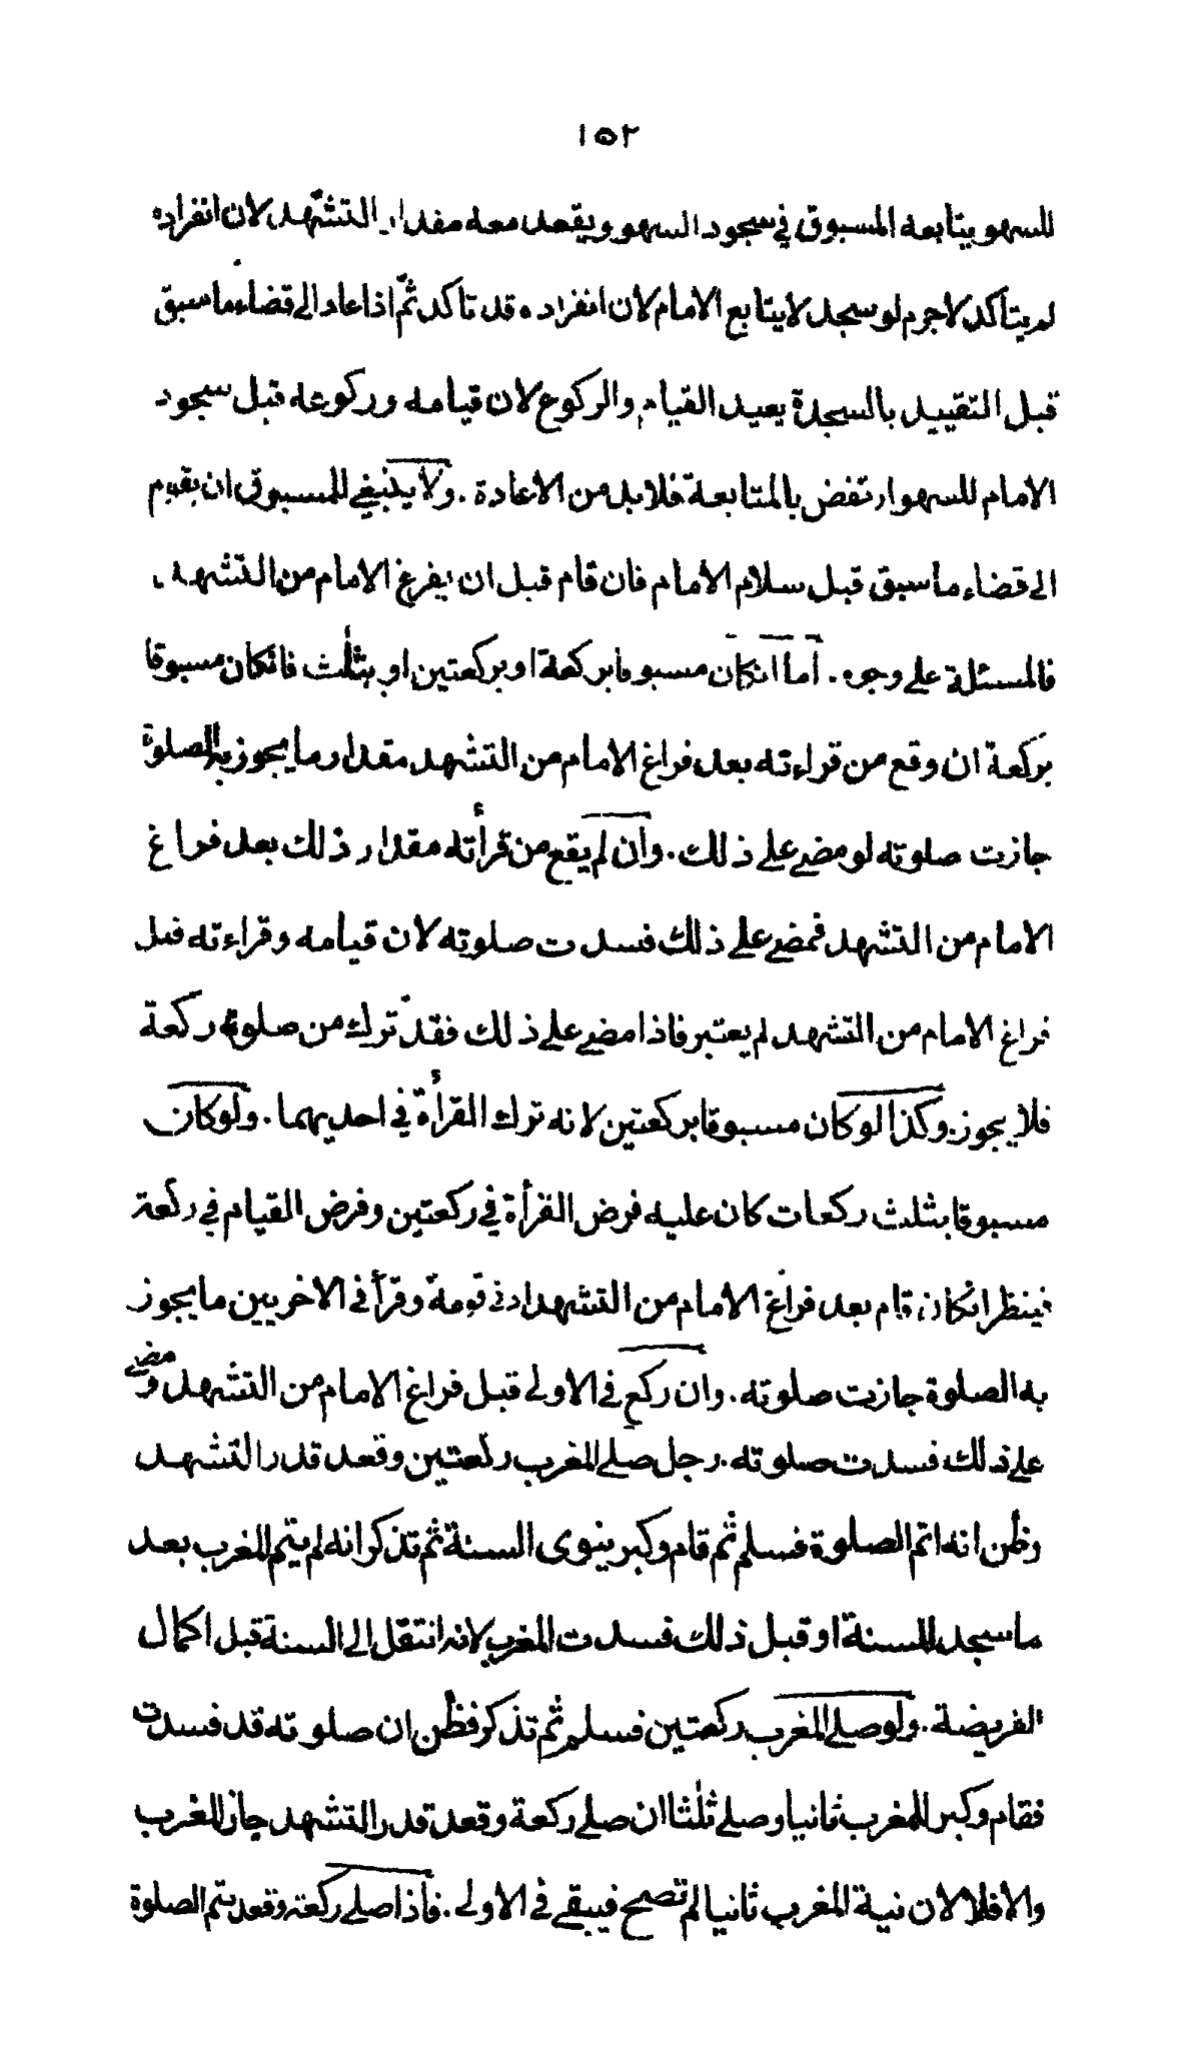 ١٥٢
للسهو يتابعه المسبوق في سجود السهو ويقعد معه مقدار التشهّد لان انفراده
لم يتأكد لاجرم لو سجد لا يتابع الامام لان انفراده قد تاكد ثمّ اذا عاد الى قضاء ما سبق
قبل التقييد بالسجدة يعيد القيام والركوع لان قيامه وركوعه قبل سجود
الامام للسهو ارتفض بالمتابعة فلا بد من الاعادة . ولا ينبغي للمسبوق ان يقوم
الى قضاء ما سبق قبل سلام الامام فان قام قبل ان يفرغ الامام من التشهد .
فالمسئلة على وجوه . اما انكان مسبوقا بركعة او بركعتين او بثلٰث فانكان مسبوقا
بركعة ان وقع من قراءته بعد فراغ الامام من التشهد مقدار ما يجوز به الصلوة
جازت صلوته لو مضى على ذلك . وان لم يقع من قرأته مقدار ذلك بعد فراغ
الامام من التشهد فمضى على ذلك فسدت صلوته لان قيامه وقراءته قبل
فراغ الامام من التشهد لم يعتبر فاذا مضى على ذلك فقد ترك من صلوته ركعة
فلا يجوز . وكذا لو كان مسبوقا بركعتين لانه ترك القرأة في احديهما . ولو كان
مسبوقا بثلث ركعات كان عليه فرض القرأة في ركعتين وفرض القيام في ركعة
فينظر انكان قام بعد فراغ الامام من التشهد ادنى قومة وقرأ في الاخريين ما يجوز
به الصلوة جازت صلوته . وان ركع في الاولى قبل فراغ الامام من التشهد ومضى
على ذلك فسدت صلوته . رجل صلى المغرب ركعتين وقعد قدر التشهد
وظن انه اتم الصلوة فسلم ثم قام وكبر ينوى السنة ثم تذكر انه لم يتم المغرب بعد
ما سجد للسنة او قبل ذلك فسدت المغرب لانه انتقل الى السنة قبل اكمال
الفريضة . ولو صلى المغرب ركعتين فسلم ثم تذكر فظن ان صلوته قد فسدت
فقام وكبر للمغرب ثانيا وصلى ثلٰثا ان صلى ركعة وقعد قدر التشهد جاز المغرب
والا فلا لان نية المغرب ثانيا لم تصح فيبقى في الاولى . فاذا صلى ركعة وقعد يتم الصلوة